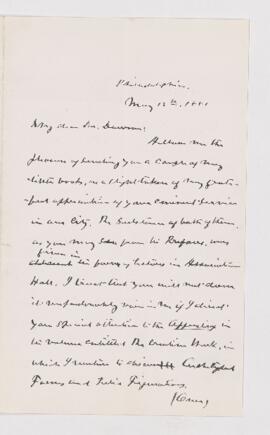 Philadelphia,
May 12th, 1881
My dear Dr. Dawson:
Allow me the
pleasure of sending you a couple of my
little books, as a slight token of my grate-
ful appreciation of your eminent services
in our City. The substance of both of them,
as you may see from the Prefaces, was
given in
the form of lectures in Association
Hall. I trust that you will not deem
it unpardonably vain in me if I direct
your special attention to the Appendix in
the volume entitled The Creative Week, in
which I venture to discuss Archetypal
Forms and Tulic Figurations.